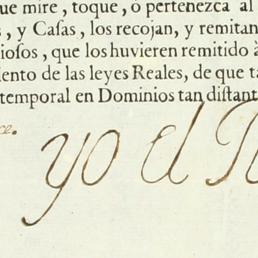 ue mire, toque, ò pertenezca al
s, y Casas, los recojan, y remitan
iosos, que los huvieren remitido à
iento de las leyes Reales, de que ta
temporal en Dominios tan distant
ce.
yo el R